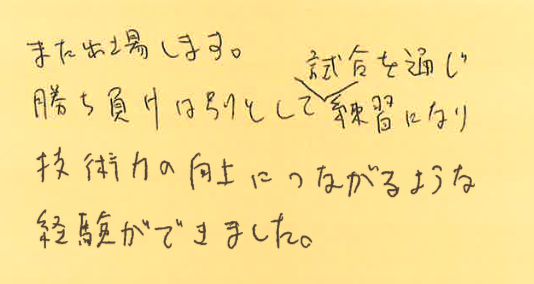 また出場します。
試合を通じ
勝ち負けは別として練習になり
技術力の向上につながるような
経験ができました。